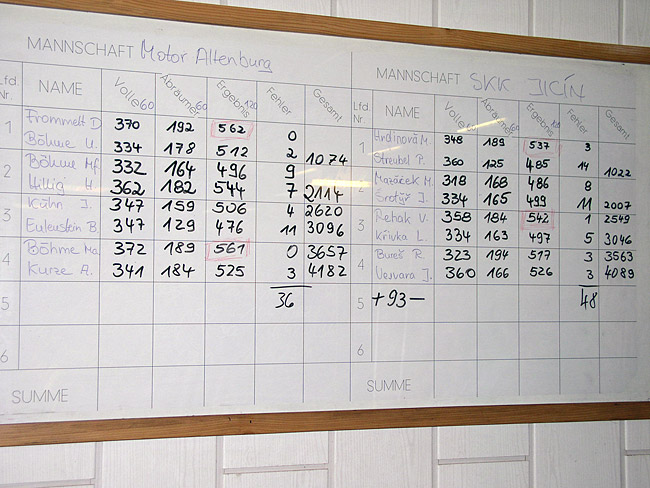 MANNSCHAFT Motor Altenburg
Lfd. Nr. NAME Volle 60 Abräumer 60 Ergebnis 120 Fehler Gesamt
1 Frommelt D. 370 192 562 0
Böhme U. 334 178 512 2 1074
2 Böhme Mf. 332 164 496 9
Hillig H. 362 182 544 7 2114
3 Kühn J. 347 159 506 4 2620
Eulenstein B. 347 129 476 11 3096
4 Böhme Ma. 372 189 561 0 3657
Kurze A. 341 184 525 3 4182
5 36
6
SUMME
MANNSCHAFT SKK JIČÍN
Lfd. Nr. NAME Volle Abräumer Ergebnis Fehler Gesamt
1 Hrdinová M. 348 189 537 3
Streubel P. 360 125 485 14 1022
2 Mazáček M. 318 168 486 8
334 165 499 11 2007
3 Řehák V. 358 184 542 1 2549
Křivka L. 334 163 497 5 3046
4 Bureš R. 323 194 517 3 3563
Vejvara J. 360 166 526 3 4089
5 +93- 48
6
SUMME